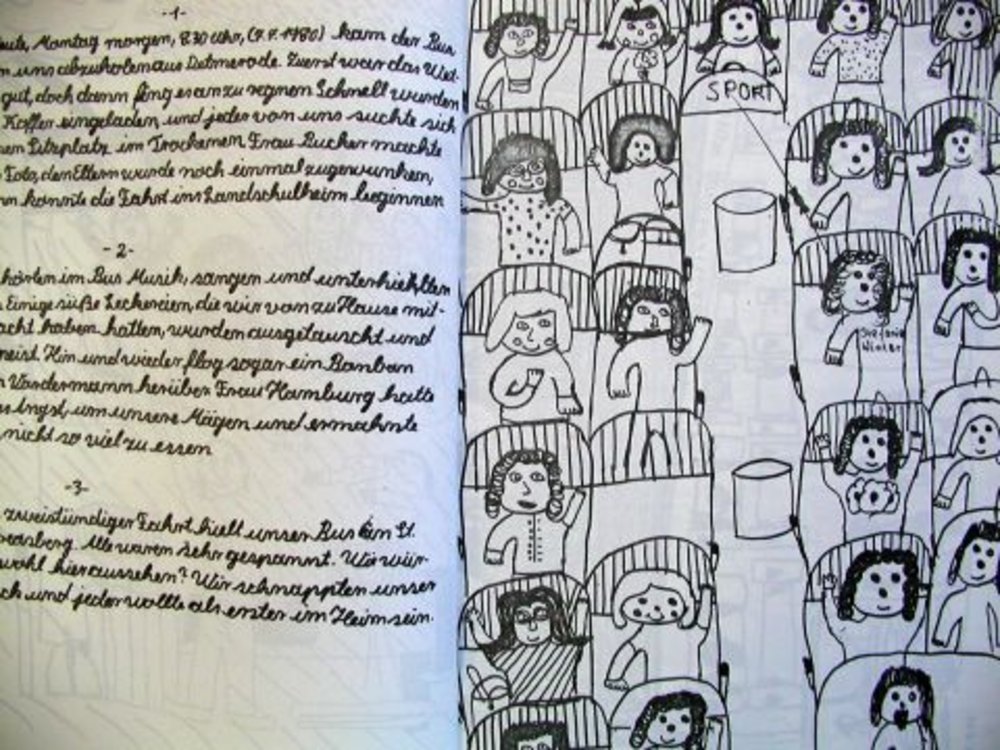 -1-
eute, Montag morgen, 8.30 Uhr, (7.7.1980) kam der Bus
uns abzuholen aus Detmerode. Zuerst war das Wet-
gut, doch dann fing es an zu regnen Schnell wurden
Koffer eingeladen, und jeder von uns suchte sich
nen Sitzplatz im Trockenen. Frau Bucker machte
Foto, den Eltern wurde noch einmal zugewunken,
nn konnte die Fahrt ins Landschulheim beginnen
-2-
hörten im Bus Musik, sangen und unterhielten
Einige süße Leckereien, die wir von zu Hause mit-
acht haben hatten, wurden ausgetauscht und
peist. Hin und wieder flog sogar ein Bonbon
Vordermann herüber. Frau Hamburg hatte
Angst, um unsere Mägen und ermahnte
nicht so viel zu essen
-3-
zweistündiger Fahrt hielt unser Bus in St.
reasberg. Alle waren sehr gespannt. Wie wür-
wohl hier aussehen? Wir schnappten unser
ck und jeder wollte als erster im Heim sein.
SPORT
Stefanie
Winter